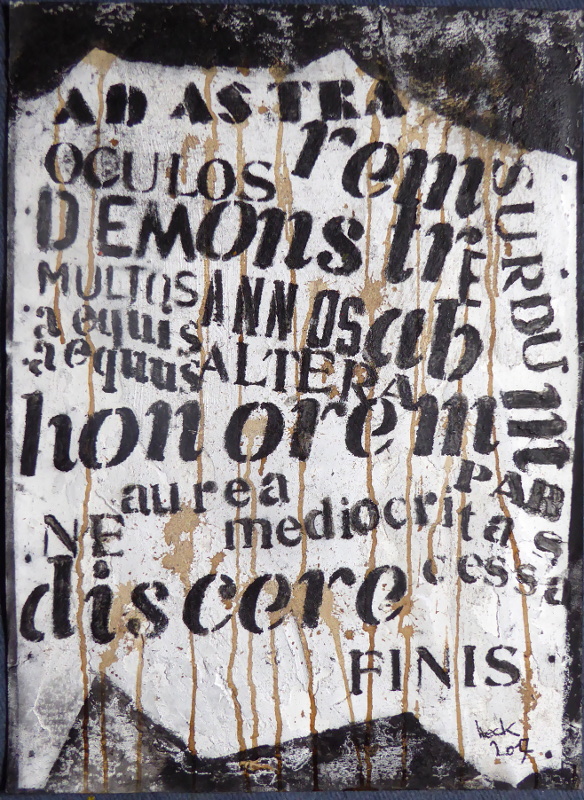 AD ASTRA
rem
OCULOS
SURDUM
DEMonstrE
MULTOS ANNOS ab
aequis
aequus ALTERA
honorem
PARS
aurea
mediocritas
NE
cessa
discere
FINIS
heck
2017